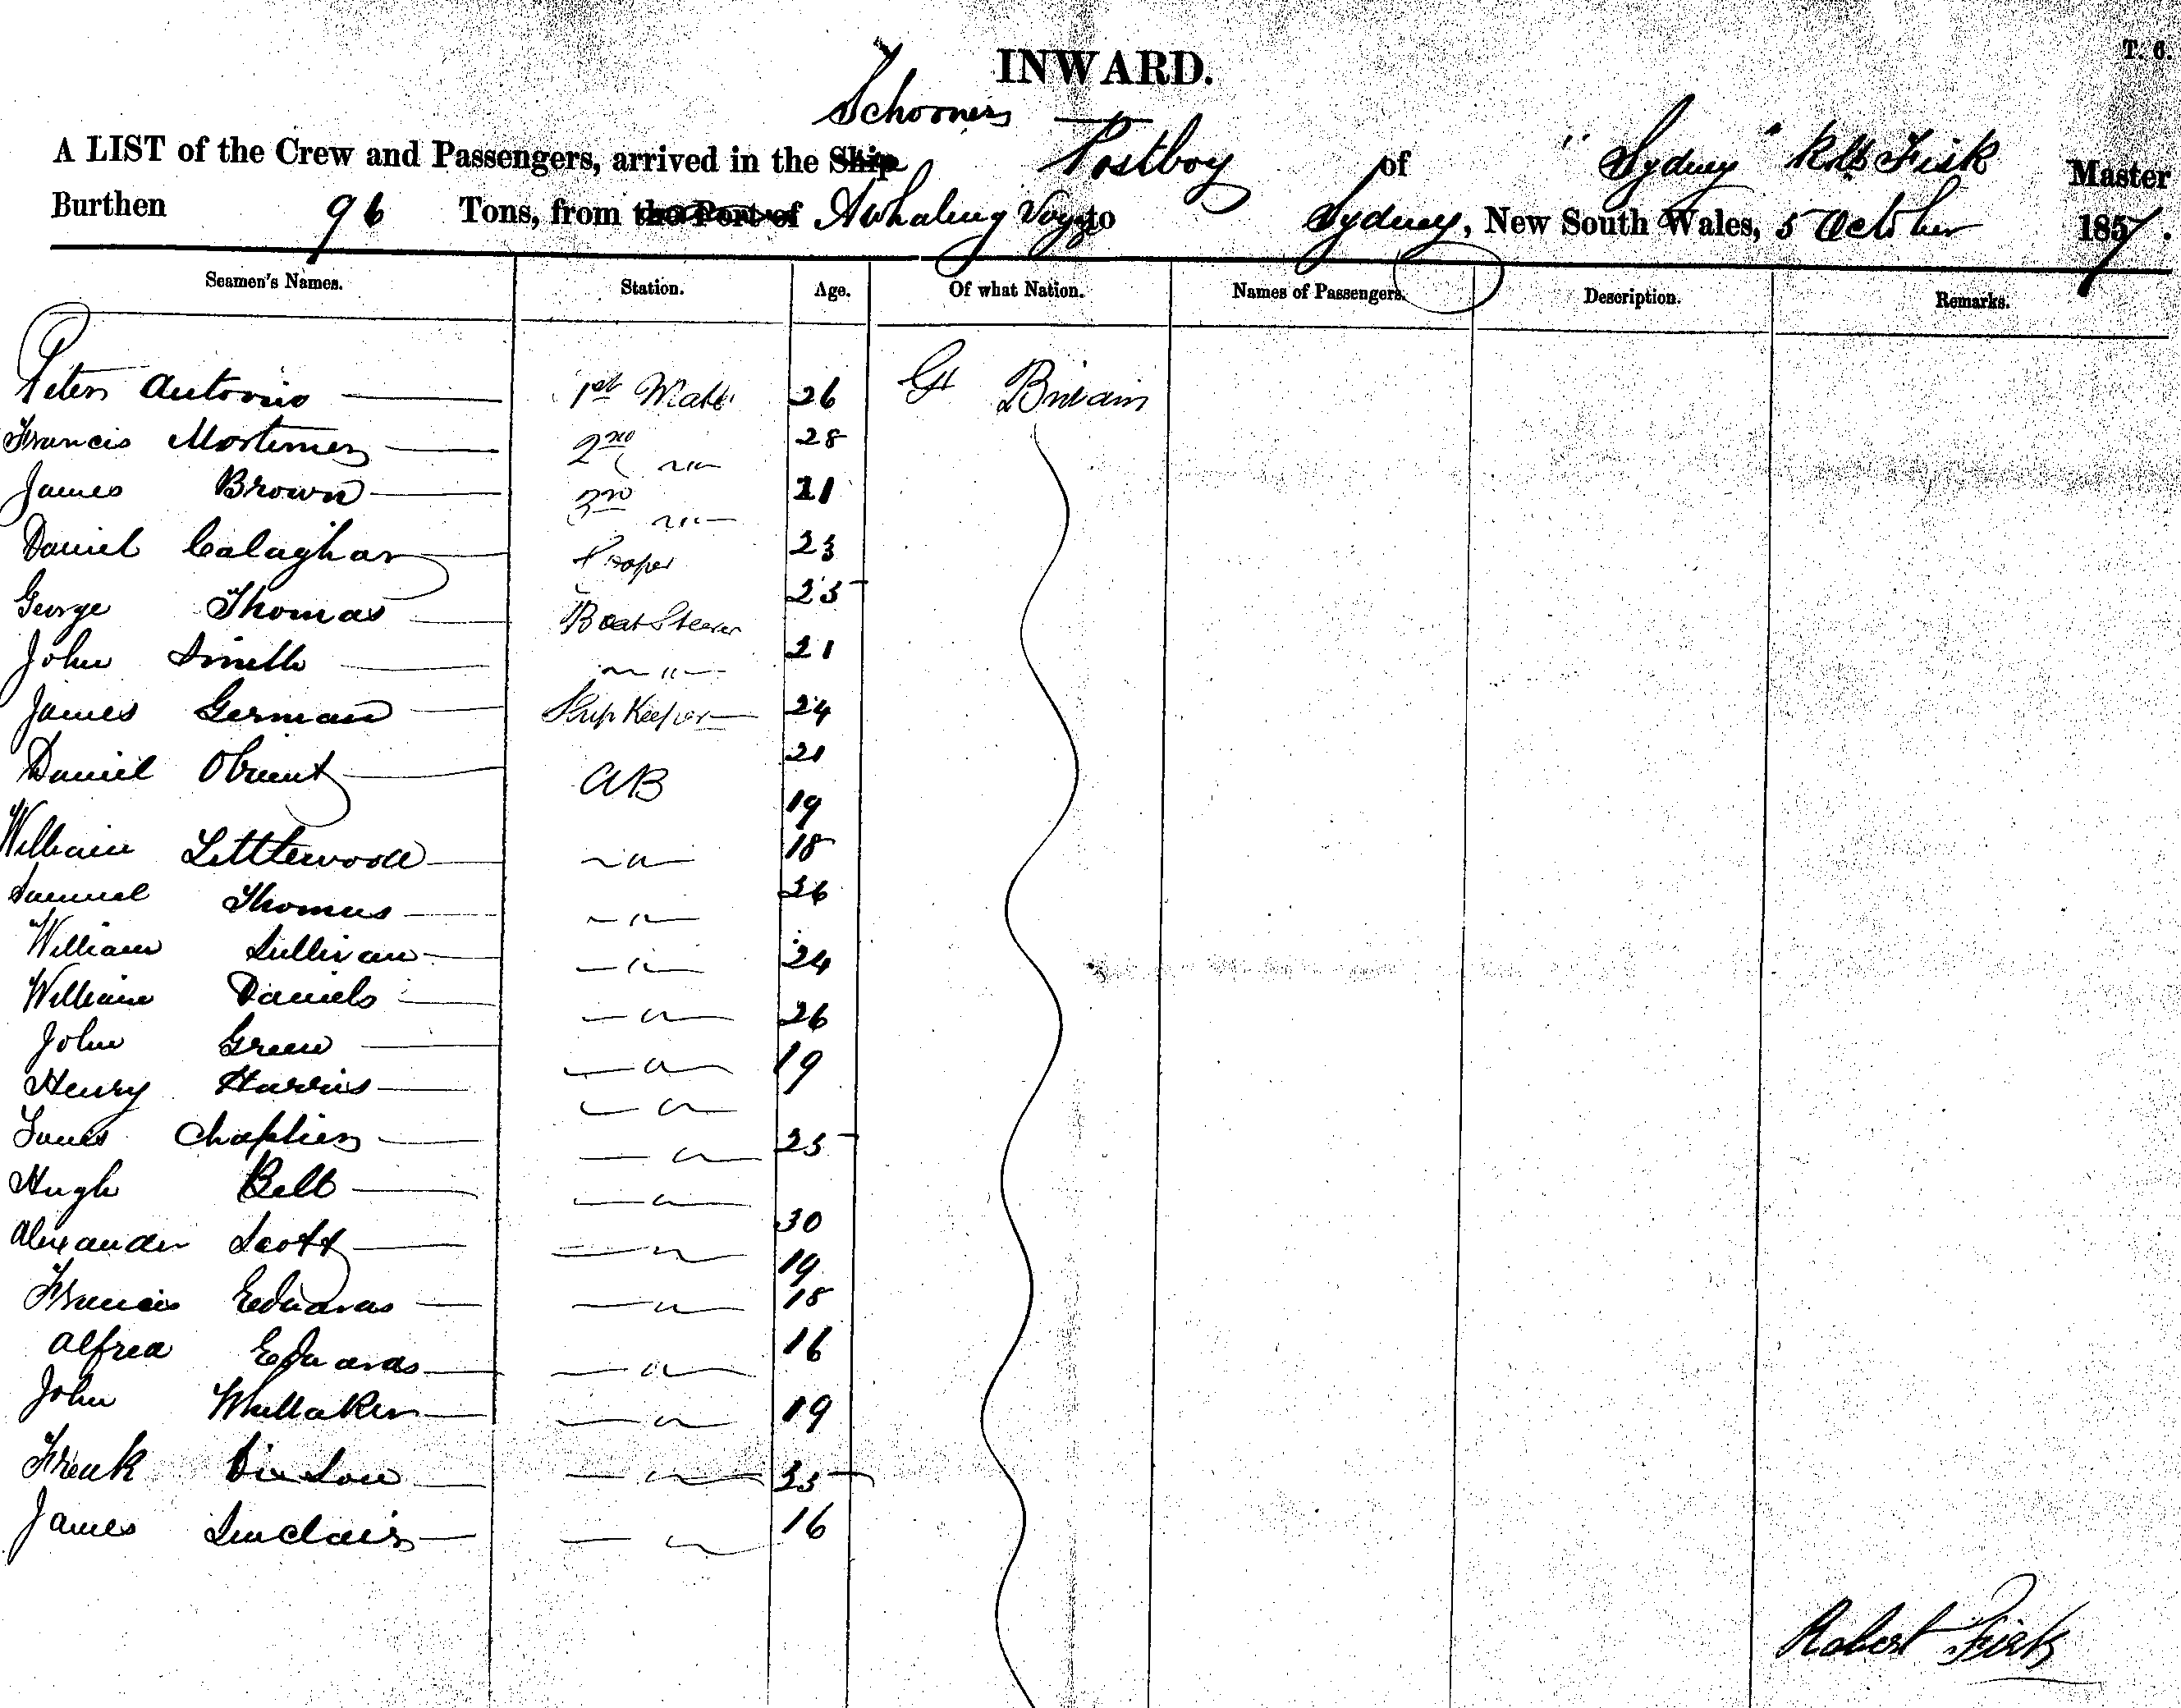 T. 6.
INWARD.
Schooner
A LIST of the Crew and Passengers, arrived in the Ship Postboy of "Sydney" Rbt Fisk Master
Burthen 96 Tons, from the Port of A whaling Voyge to Sydney, New South Wales, 5 October 1857.
Seamen's Names. Station. Age. Of what Nation. Names of Passengers. Description. Remarks.
Peter Antonio 1st Mate 26 Gt Britain
Francis Mortimer 2nd " 28
James Brown 3rd " 21
Daniel Calaghan Cooper 23
George Thomas Boat Steerer 25
John Smith " 21
James German Ship Keeper 24
Daniel AB 21
19
William Littlewood " 18
Samuel Thomas " 26
William Sullivan " 24
William Daniels " 26
John Green " 19
Henry Harris "
James Chaplin " 25
Hugh Bell "
Alexander Scott " 30
19
Francis Edwards " 18
Alfred Edwards " 16
John Whittaker " 19
Frank " 35
James Sinclair " 16
Robert Fisk